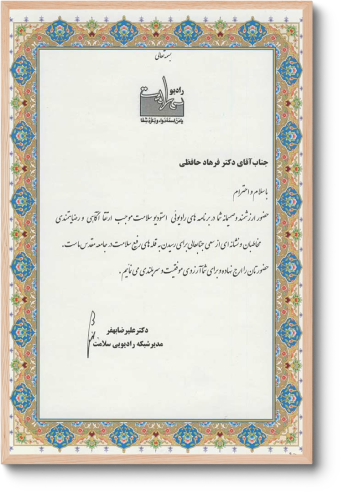 بسمه تعالی
رادیو
سلامت
جناب آقای دکتر فرهاد حافظی
با سلام و احترام
حضور ارزشمند و صمیمانه شما در برنامه های رادیویی استودیو سلامت موجب ارتقا آگاهی و رضایتمندی
مخاطبان و نشانه ای از سعی جنابعالی برای رسیدن به قله های رفیع سلامت در جامعه مقدس ماست.
حضورتان را ارج نهاده و برای شما آرزوی موفقیت و سربلندی می نمایم.
دکتر علیرضا بهفر
مدیر شبکه رادیویی سلامت